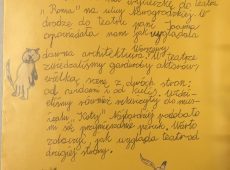 " Roma" na ulicy Nowogrodzkiej. W
drodze do teatru pani
opowiadała nam jak wyglądała
dawna architektura Warszawy.
W teatrze
zwiedzaliśmy garderoby aktorów,
wielką scenę z dwóch stron:
od widowni i od kulis. Widzie-
liśmy również rekwizyty do mus-
icalu „Koty". Najbardziej podobało
mi się przymierzanie peruk. Warto
zobaczyć, jak wygląda teatr od
drugiej strony.